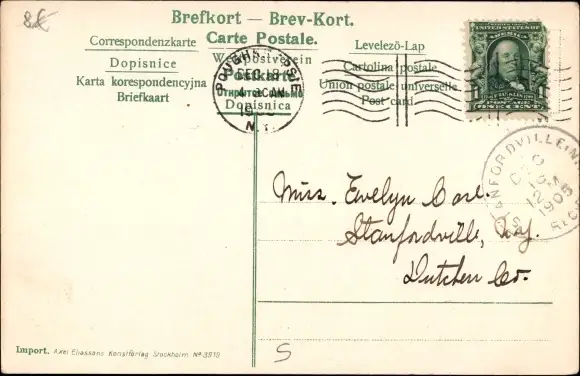 8€
Brefkort — Brev-Kort.
Correspondenzkarte
Carte Postale.
Levelezö-Lap
Dopisnice
Weltpostverein
Cartolina postale
Karta korespondencyjna
Postkarte
Union postale universelle
Briefkaart
Открытое письмо
Post card
Dopisnica
POUGHKEEPSIE
DEC 18
N.Y.
UNITED STATES OF
AMERICA
FRANKLIN
POSTAGE
1 ONE CENT 1
STANFORDVILLE, N.Y.
DEC
1905
REC'D
Miss. Evelyn
Stanfordville, N.Y.
Dutchess Co.
Import. Axel Eliassons Konstförlag Stockholm No 3919
S